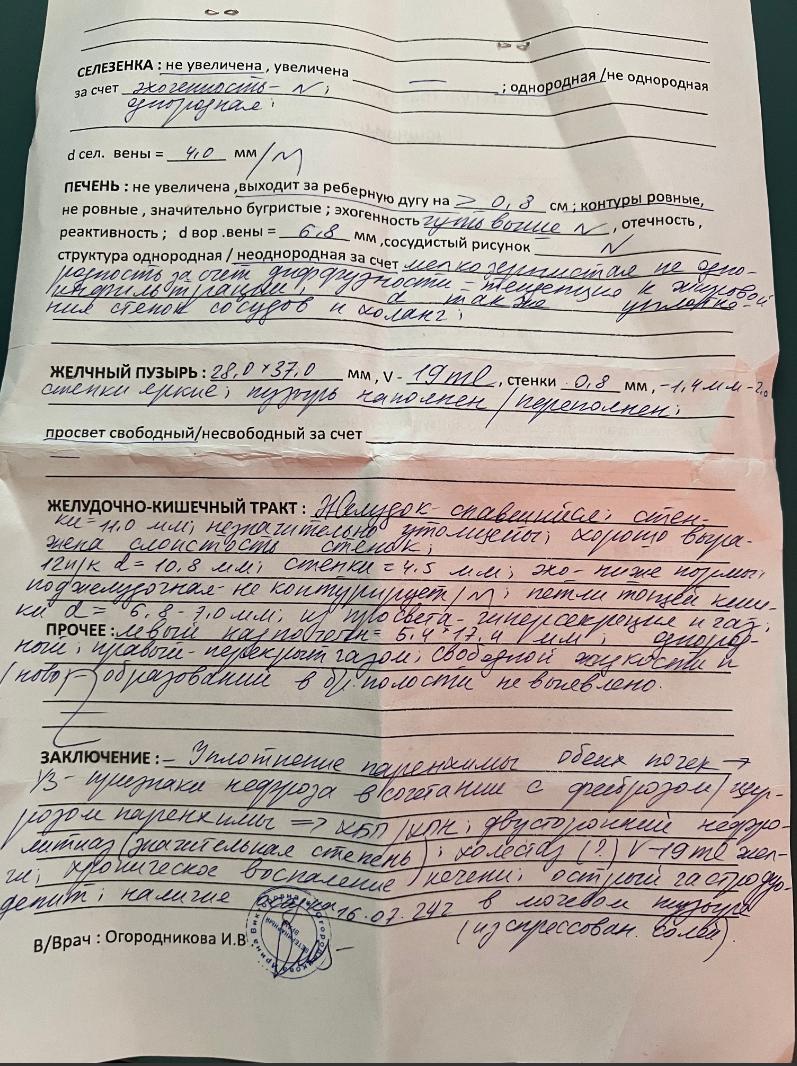 СЕЛЕЗЕНКА : не увеличена , увеличена — ; однородная /не однородная
за счет эхогенность - N ;
однородная ;
d сел. вены = 4,0 мм /N
ПЕЧЕНЬ : не увеличена ,выходит за реберную дугу на > 0,8 см ; контуры ровные,
не ровные , значительно бугристые ; эхогенность чуть выше N , отечность ,
реактивность ; d вор .вены = 6,8 мм ,сосудистый рисунок N
структура однородная / неоднородная за счет мелкозернистая не одно-
родность за счет диффузности - тенденцию к жировой
инфильтрации ; а также уплотне-
ния стенок сосудов и холанг ;
ЖЕЛЧНЫЙ ПУЗЫРЬ : 28,0 х 37,0 мм , V - 19 ml , стенки 0,8 мм , -1,4 мм - 2,0
стенки яркие ; пузырь наполнен / переполнен ;
просвет свободный/несвободный за счет
—
ЖЕЛУДОЧНО-КИШЕЧНЫЙ ТРАКТ : Желудок - спавшийся ; стен-
ки = 11,0 мм ; незначительно утолщены ; хорошо выра-
жена слоистость стенок ;
12п/к d = 10,8 мм ; стенки = 4,5 мм ; эхо - ниже нормы ;
поджелудочная - не контурирует /N ; петли тощей киш-
ки d = 6,8 - 7,0 мм ; из просвета - гиперсекреция и газ ;
ПРОЧЕЕ : левый надпочечн = 6,4 * 17,4 мм ; однород-
ный ; правый - перекрыт газом ; свободной жидкости и
/ново/ образований в бр. полости не выявлено.
ЗАКЛЮЧЕНИЕ : – Уплотнение паренхимы обеих почек →
УЗ - признаки нефроза в сочетании с фиброзом / цир-
розом паренхимы => ХБП / ХПН ; двусторонний нефро-
литиаз (значительная степень) ; холестаз (?) V - 19 ml жел-
чи ; хроническое воспаление печени ; острый гастродуо-
денит ; наличие 16.07.24г в мочевом пузыре
(из спрессован. солей).
В/Врач : Огородникова И.В